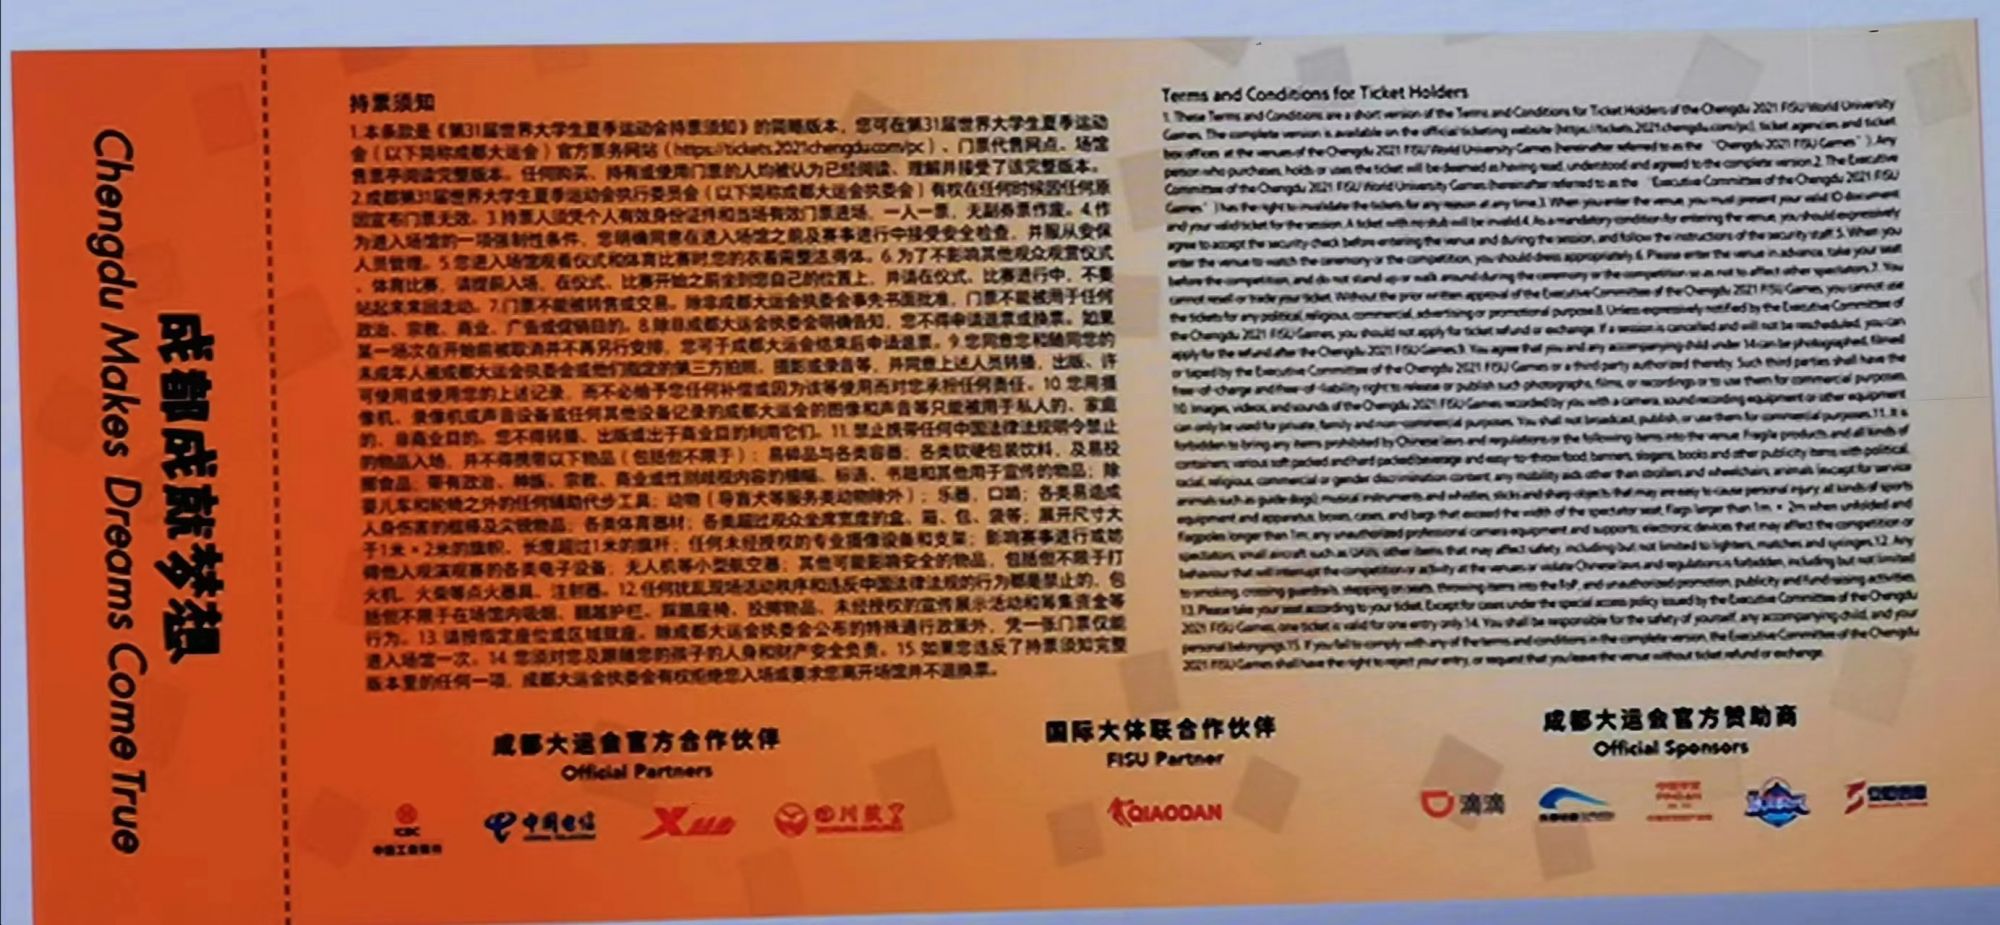 Chengdu Makes Dreams Come True
成都成就梦想
持票须知
1.本条款是《第31届世界大学生夏季运动会持票须知》的简略版本，您可在第31届世界大学生夏季运动
会（以下简称成都大运会）官方票务网站（https://tickets.2021chengdu.com/pc）、门票代售网点、场馆
售票亭阅读完整版本。任何购买、持有或使用门票的人均被认为已经阅读、理解并接受了该完整版本。
2.成都第31届世界大学生夏季运动会执行委员会（以下简称成都大运会执委会）有权在任何时候因任何原
因宣布门票无效。3.持票人须凭个人有效身份证件和当场有效门票进场，一人一票，无副券票作废。4.作
为进入场馆的一项强制性条件，您明确同意在进入场馆之前及赛事进行中接受安全检查，并服从安保
人员管理。5.您进入场馆观看仪式和体育比赛时您的衣着需整洁得体。6.为了不影响其他观众观赏仪式
、体育比赛，请提前入场，在仪式、比赛开始之前坐到您自己的位置上，并请在仪式、比赛进行中，不要
站起来来回走动。7.门票不能被转售或交易。除非成都大运会执委会事先书面批准，门票不能被用于任何
政治、宗教、商业、广告或促销目的。8.除非成都大运会执委会明确告知，您不得申请退票或换票。如果
某一场次在开始前被取消并不再另行安排，您可于成都大运会结束后申请退票。9.您同意您和随同您的
未成年人被成都大运会执委会或他们指定的第三方拍照、摄影或录音等，并同意上述人员转播、出版、许
可使用或使用您的上述记录，而不必给予您任何补偿或因为该等使用而对您承担任何责任。10.您用摄
像机、录像机或声音设备或任何其他设备记录的成都大运会的图像和声音等只能被用于私人的、家庭
的、非商业目的。您不得转播、出版或出于商业目的利用它们。11.禁止携带任何中国法律法规明令禁止
的物品入场，并不得携带以下物品（包括但不限于）：易碎品与各类容器；各类软硬包装饮料，及易投
掷食品；带有政治、种族、宗教、商业或性别歧视内容的横幅、标语、书籍和其他用于宣传的物品；除
婴儿车和轮椅之外的任何辅助代步工具；动物（导盲犬等服务类动物除外）；乐器，口哨；各类易造成
人身伤害的棍棒及尖锐物品；各类体育器材；各类超过观众坐席宽度的盒、箱、包、袋等；展开尺寸大
于1米×2米的旗帜、长度超过1米的旗杆；任何未经授权的专业摄像设备和支架；影响赛事进行或妨
碍他人观演观赛的各类电子设备，无人机等小型航空器；其他可能影响安全的物品，包括但不限于打
火机、火柴等点火器具、注射器。12.任何扰乱现场活动秩序和违反中国法律法规的行为都是禁止的，包
括但不限于在场馆内吸烟、翻越护栏、踩踏座椅、投掷物品、未经授权的宣传展示活动和筹集资金等
行为。13.请按指定座位或区域就座。除成都大运会执委会公布的特殊通行政策外，凭一张门票仅能
进入场馆一次。14.您须对您及跟随您的孩子的人身和财产安全负责。15.如果您违反了持票须知完整
版本里的任何一项，成都大运会执委会有权拒绝您入场或要求您离开场馆并不退换票。
Terms and Conditions for Ticket Holders
1. These Terms and Conditions are a short version of the Terms and Conditions for Ticket Holders of the Chengdu 2021 FISU World University
Games. The complete version is available on the official ticketing website (https://tickets.2021chengdu.com/pc), ticket agencies and ticket
box offices at the venues of the Chengdu 2021 FISU World University Games (hereinafter referred to as the "Chengdu 2021 FISU Games"). Any
person who purchases, holds or uses the ticket will be deemed as having read, understood and agreed to the complete version.2. The Executive
Committee of the Chengdu 2021 FISU World University Games (hereinafter referred to as the "Executive Committee of the Chengdu 2021 FISU
Games") has the right to invalidate the tickets for any reason at any time.3. When you enter the venue, you must present your valid ID document
and your valid ticket for the session. A ticket with no stub will be invalid.4. As a mandatory condition for entering the venue, you should expressively
agree to accept the security check before entering the venue and during the session, and follow the instructions of the security staff.5. When you
enter the venue to watch the ceremony or the competition, you should dress appropriately.6. Please enter the venue in advance, take your seat
before the competition, and do not stand up or walk around during the ceremony or the competition so as not to affect other spectators.7. You
cannot resell or trade your ticket. Without the prior written approval of the Executive Committee of the Chengdu 2021 FISU Games, you cannot use
the tickets for any political, religious, commercial, advertising or promotional purpose.8. Unless expressively notified by the Executive Committee of
the Chengdu 2021 FISU Games, you should not apply for ticket refund or exchange. If a session is cancelled and will not be rescheduled, you can
apply for the refund after the Chengdu 2021 FISU Games.9. You agree that you and any accompanying child under 14 can be photographed, filmed
or taped by the Executive Committee of the Chengdu 2021 FISU Games or a third party authorized thereby. Such third parties shall have the
free-of-charge and free-of-liability right to release or publish such photographs, films, or recordings or to use them for commercial purposes.
10. Images, videos, and sounds of the Chengdu 2021 FISU Games recorded by you with a camera, sound recording equipment or other equipment
can only be used for private, family and non-commercial purposes. You shall not broadcast, publish, or use them for commercial purposes.11. It is
forbidden to bring any items prohibited by Chinese laws and regulations or the following items into the venue: Fragile products and all kinds of
containers; various soft packed and hard packed beverage and easy-to-throw food; banners, slogans, books and other publicity items with political,
racial, religious, commercial or gender discrimination content; any mobility aids other than strollers and wheelchairs; animals (except for service
animals such as guide dogs); musical instruments and whistles; sticks and sharp objects that may are easy to cause personal injury; all kinds of sports
equipment and apparatus; boxes, cases, and bags that exceed the width of the spectator seat; Flags larger than 1m × 2m when unfolded and
flagpoles longer than 1m; any unauthorized professional camera equipment and supports; electronic devices that may affect the competition or
spectators, small aircraft such as UAVs; other items that may affect safety, including but not limited to lighters, matches and syringes.12. Any
behaviour that will interrupt the competition or activity at the venues or violate Chinese laws and regulations is forbidden, including but not limited
to smoking, crossing guardrails, stepping on seats, throwing items into the FoP, and unauthorized promotion, publicity and fund-raising activities.
13. Please take your seat according to your ticket. Except for cases under the special access policy issued by the Executive Committee of the Chengdu
2021 FISU Games, one ticket is valid for one entry only.14. You shall be responsible for the safety of yourself, any accompanying child, and your
personal belongings.15. If you fail to comply with any of the terms and conditions in the complete version, the Executive Committee of the Chengdu
2021 FISU Games shall have the right to reject your entry, or request that you leave the venue without ticket refund or exchange.
成都大运会官方合作伙伴
Official Partners
国际大体联合作伙伴
FISU Partner
成都大运会官方赞助商
Official Sponsors
ICBC
中国工商银行
中国电信
四川航空
SICHUAN AIRLINES
QIAODAN
滴滴